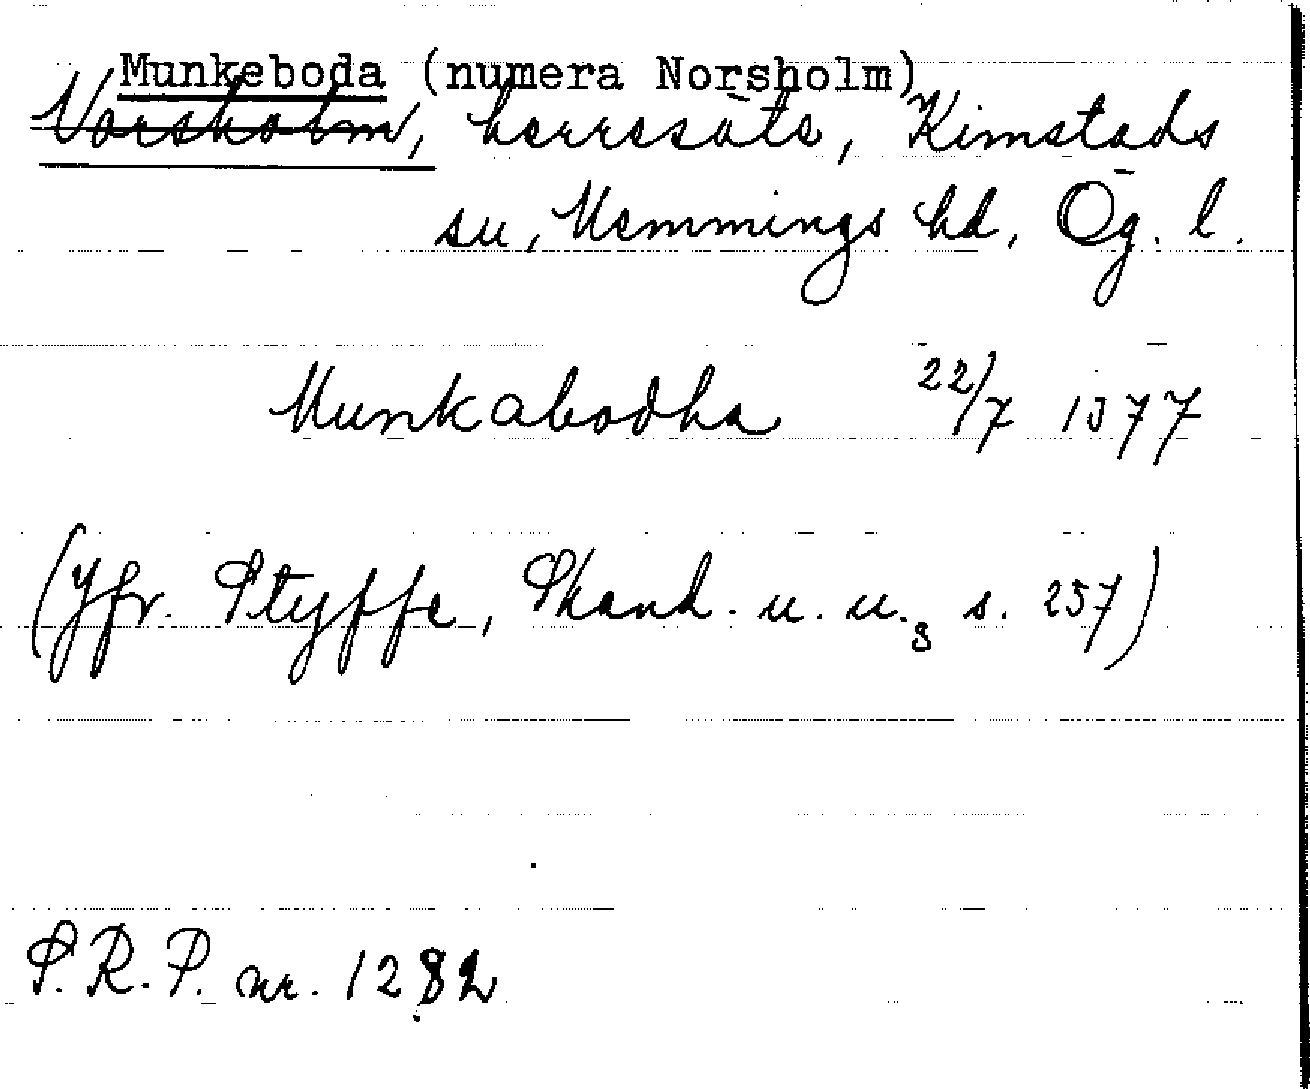 Munkeboda (numera Norsholm)
Norsholm, herresäte, Kimstads
sn, Memmings hd, Ög. l.
Munkabodha 22/7 1377
(Jfr. Styffe, Skand. u. u.3 s. 257)
S.R.P. nr. 1282